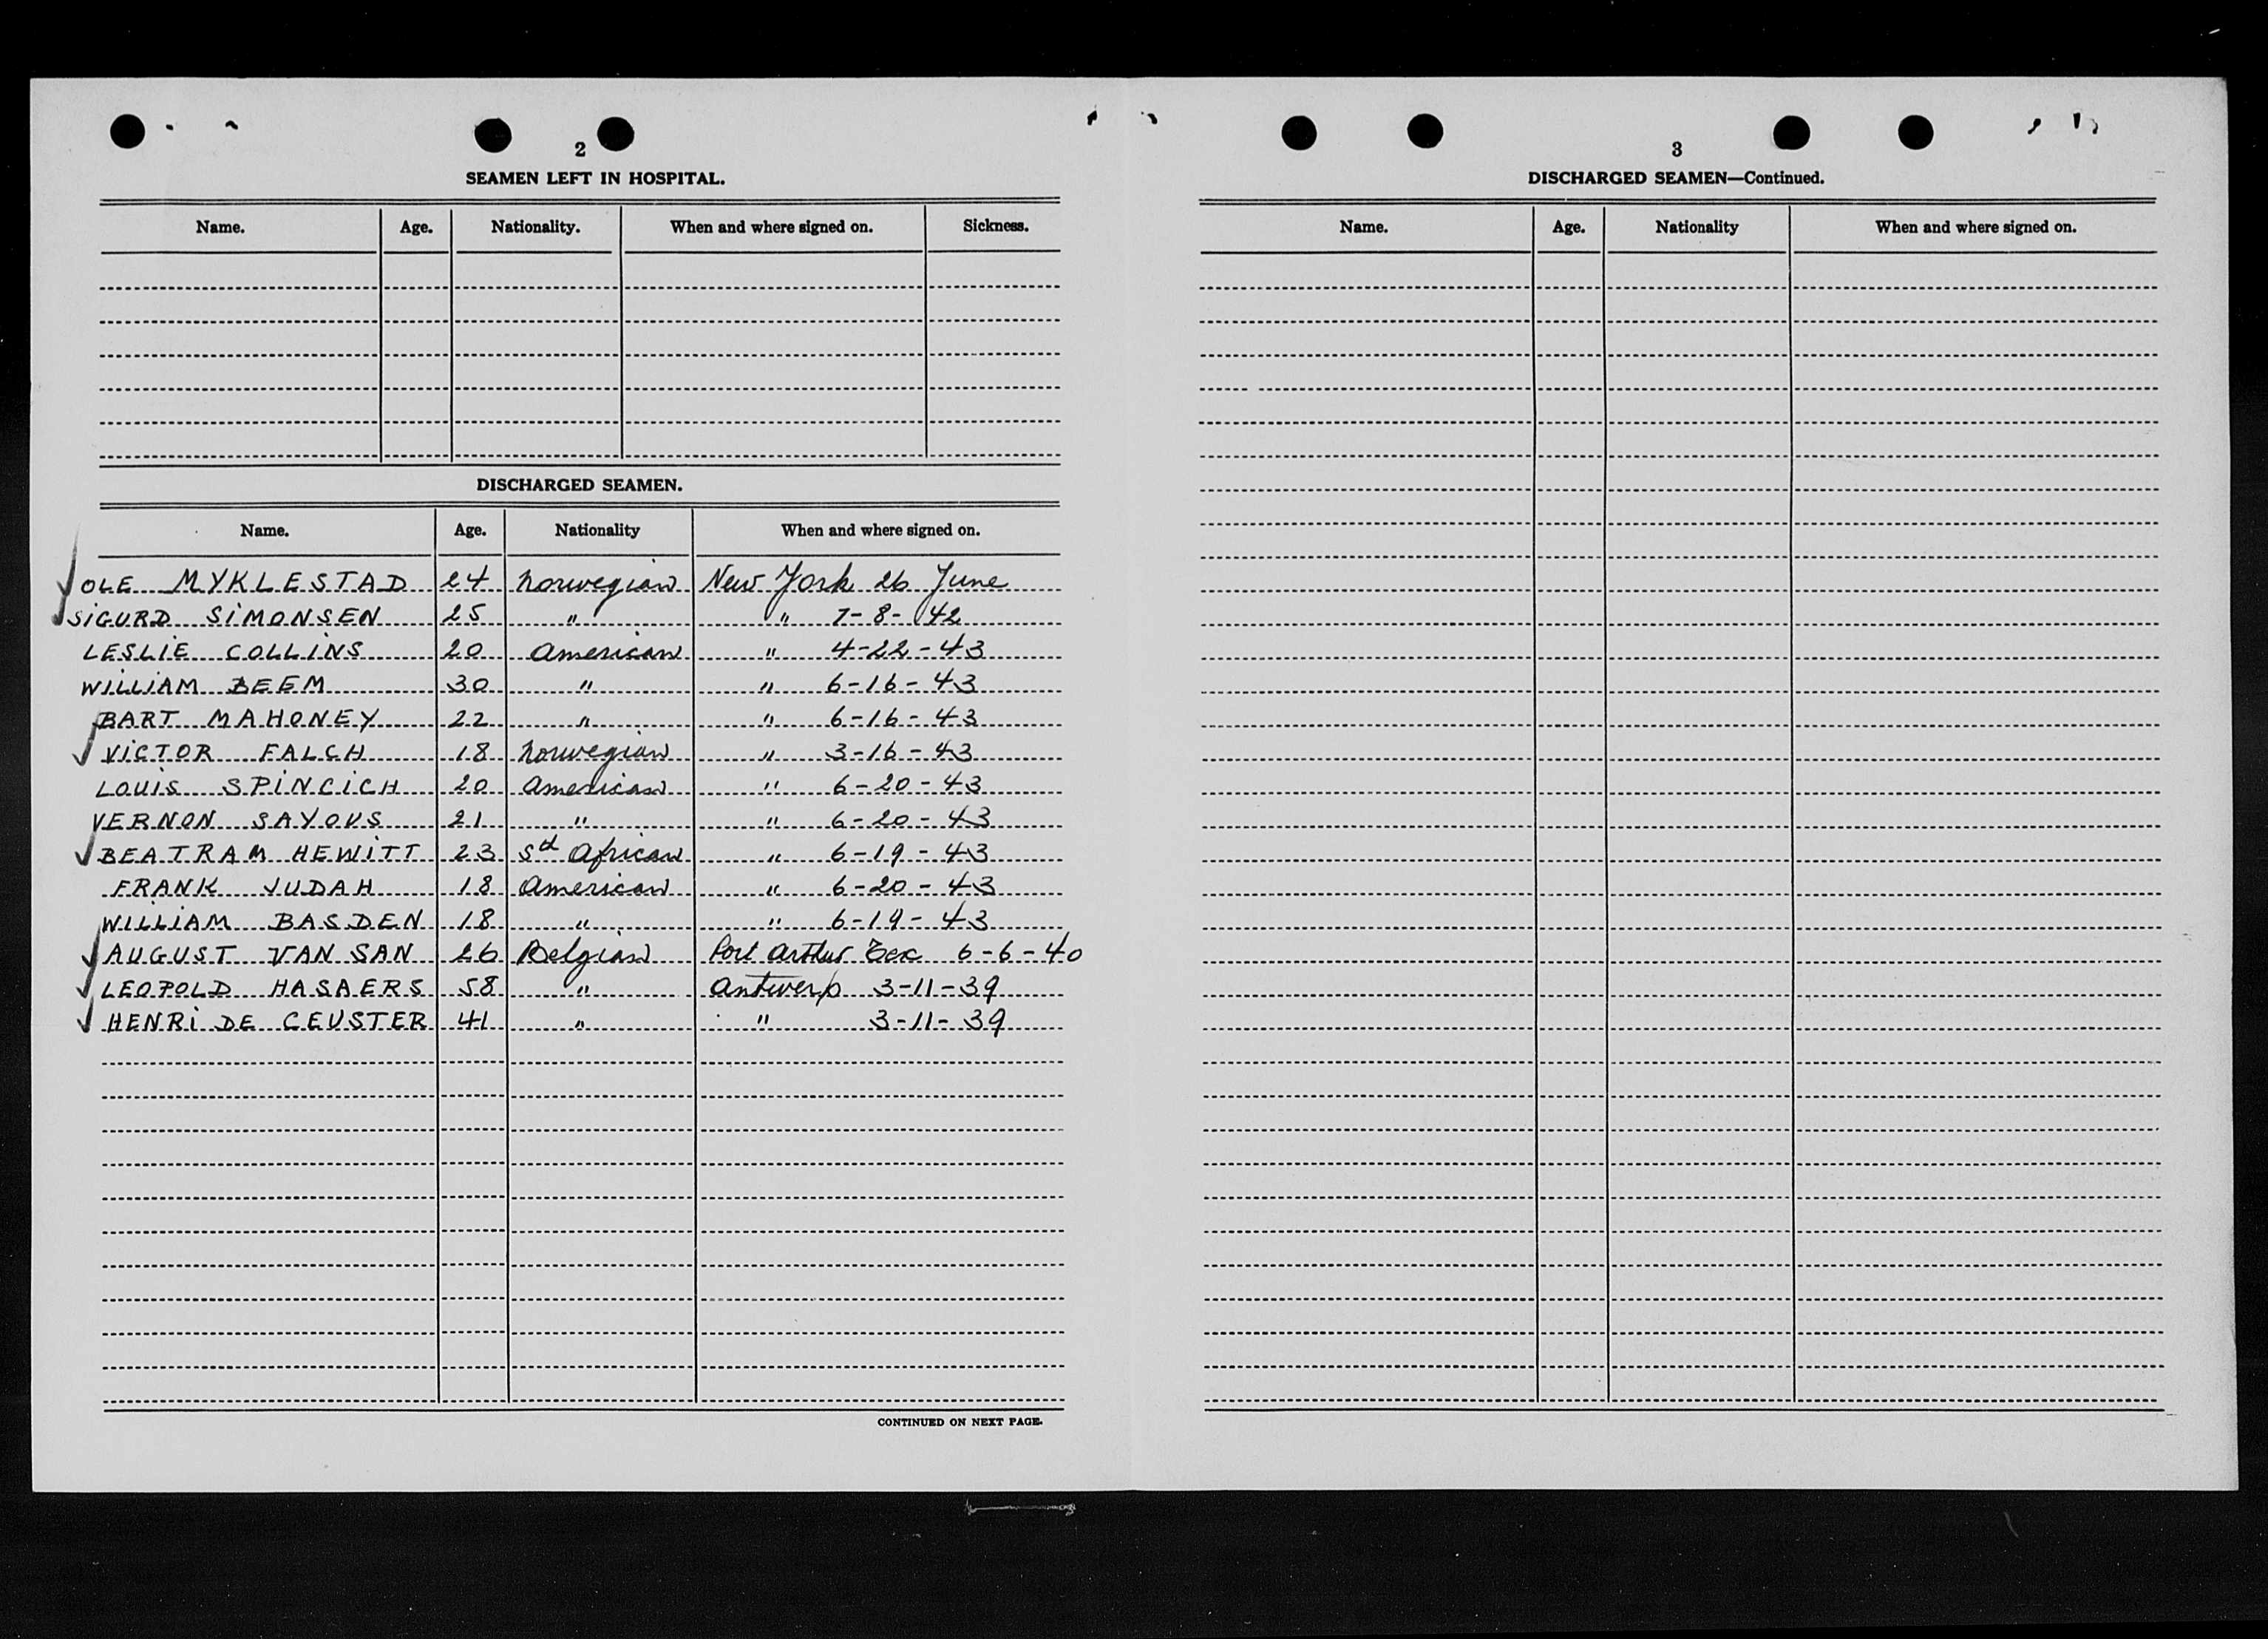 2
SEAMEN LEFT IN HOSPITAL.
Name. Age. Nationality. When and where signed on. Sickness.
DISCHARGED SEAMEN.
Name. Age. Nationality When and where signed on.
OLE MYKLESTAD 24 Norwegian New York 26 June
SIGURD SIMONSEN 25 " " 7-8-42
LESLIE COLLINS 20 American " 4-22-43
WILLIAM BEEM 30 " " 6-16-43
BART MAHONEY 22 " " 6-16-43
VICTOR FALCH 18 Norwegian " 3-16-43
LOUIS SPINCICH 20 American " 6-20-43
VERNON SAYOUS 21 " " 6-20-43
BEATRAM HEWITT 23 Sth African " 6-19-43
FRANK JUDAH 18 American " 6-20-43
WILLIAM BASDEN 18 " " 6-19-43
AUGUST VAN SAN 26 Belgian Port Arthur Tex 6-6-40
LEOPOLD HASAERS 58 " Antwerp 3-11-39
HENRI DE CEUSTER 41 " " 3-11-39
CONTINUED ON NEXT PAGE.
3
DISCHARGED SEAMEN—Continued.
Name. Age. Nationality When and where signed on.